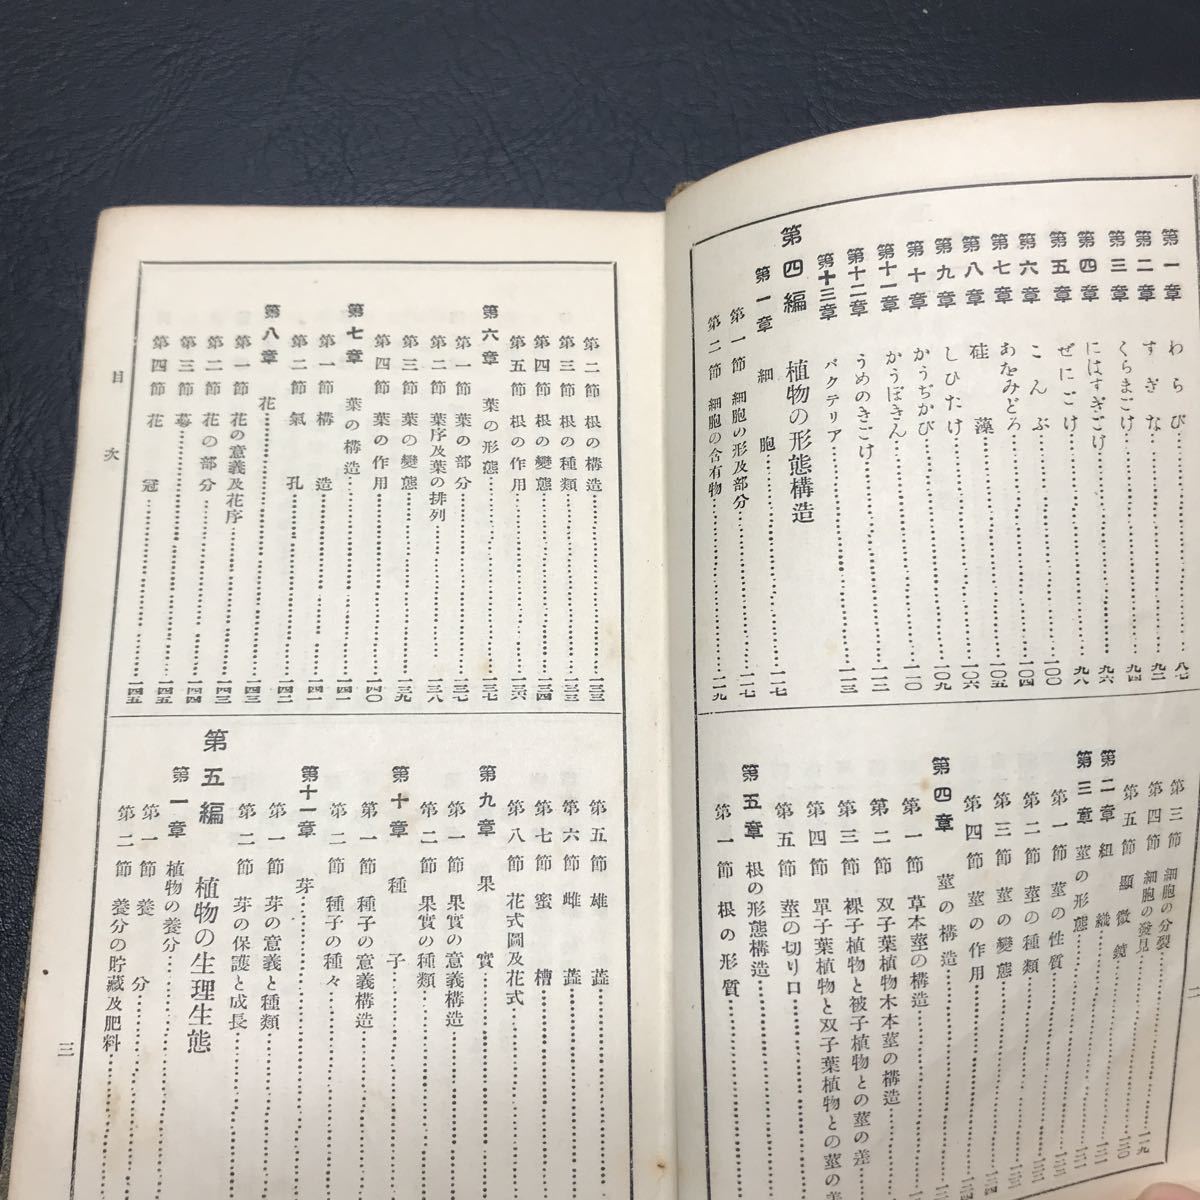 第一章 わらび 八七
第二章 すぎな 九二
第三章 くらまごけ 九四
第四章 にはすぎごけ 九六
第五章 ぜにごけ 九八
第六章 こんぶ 一〇〇
第七章 あをみどろ 一〇四
第八章 硅藻 一〇五
第九章 しひたけ 一〇六
第十章 かうぢかび 一〇九
第十一章 かうぼきん 一一〇
第十二章 うめのきごけ 一一二
第十三章 バクテリア 一一三
第四編 植物の形態構造
第一章 細胞 一一七
第一節 細胞の形及部分 一一七
第二節 細胞の含有物 一一九
第三節 細胞の分裂
第四節 細胞の發見 一一九
第五節 顯微鏡 一二〇
第二章 組織 一二一
第三章 莖の形態
第一節 莖の性質
第二節 莖の種類
第三節 莖の變態
第四節 莖の作用
第四章 莖の構造
第一節 草本莖の構造
第二節 双子葉植物木本莖の構造
第三節 裸子植物と被子植物との莖の差
第四節 單子葉植物と双子葉植物との莖の差
第五節 莖の切り口
第五章 根の形態構造
第一節 根の形質
二
第二節 根の構造 一三三
第三節 根の種類 一三三
第四節 根の變態 一三四
第五節 根の作用 一三六
第六章 葉の形態 一三七
第一節 葉の部分 一三七
第二節 葉序及葉の排列 一三八
第三節 葉の變態 一三九
第四節 葉の作用 一四〇
第七章 葉の構造 一四一
第一節 構造 一四一
第二節 氣孔 一四二
第八章 花 一四三
第一節 花の意義及花序 一四三
第二節 花の部分 一四四
第三節 萼 一四五
第四節 花冠 一四五
第五節 雄蕋
第六節 雌蕋
第七節 蜜槽
第八節 花式圖及花式
第九章 果實
第一節 果實の意義構造
第二節 果實の種類
第十章 種子
第一節 種子の意義構造
第二節 種子の種々
第十一章 芽
第一節 芽の意義と種類
第二節 芽の保護と成長
第五編 植物の生理生態
第一章 植物の養分
第一節 養分
第二節 養分の貯藏及肥料
目次
三